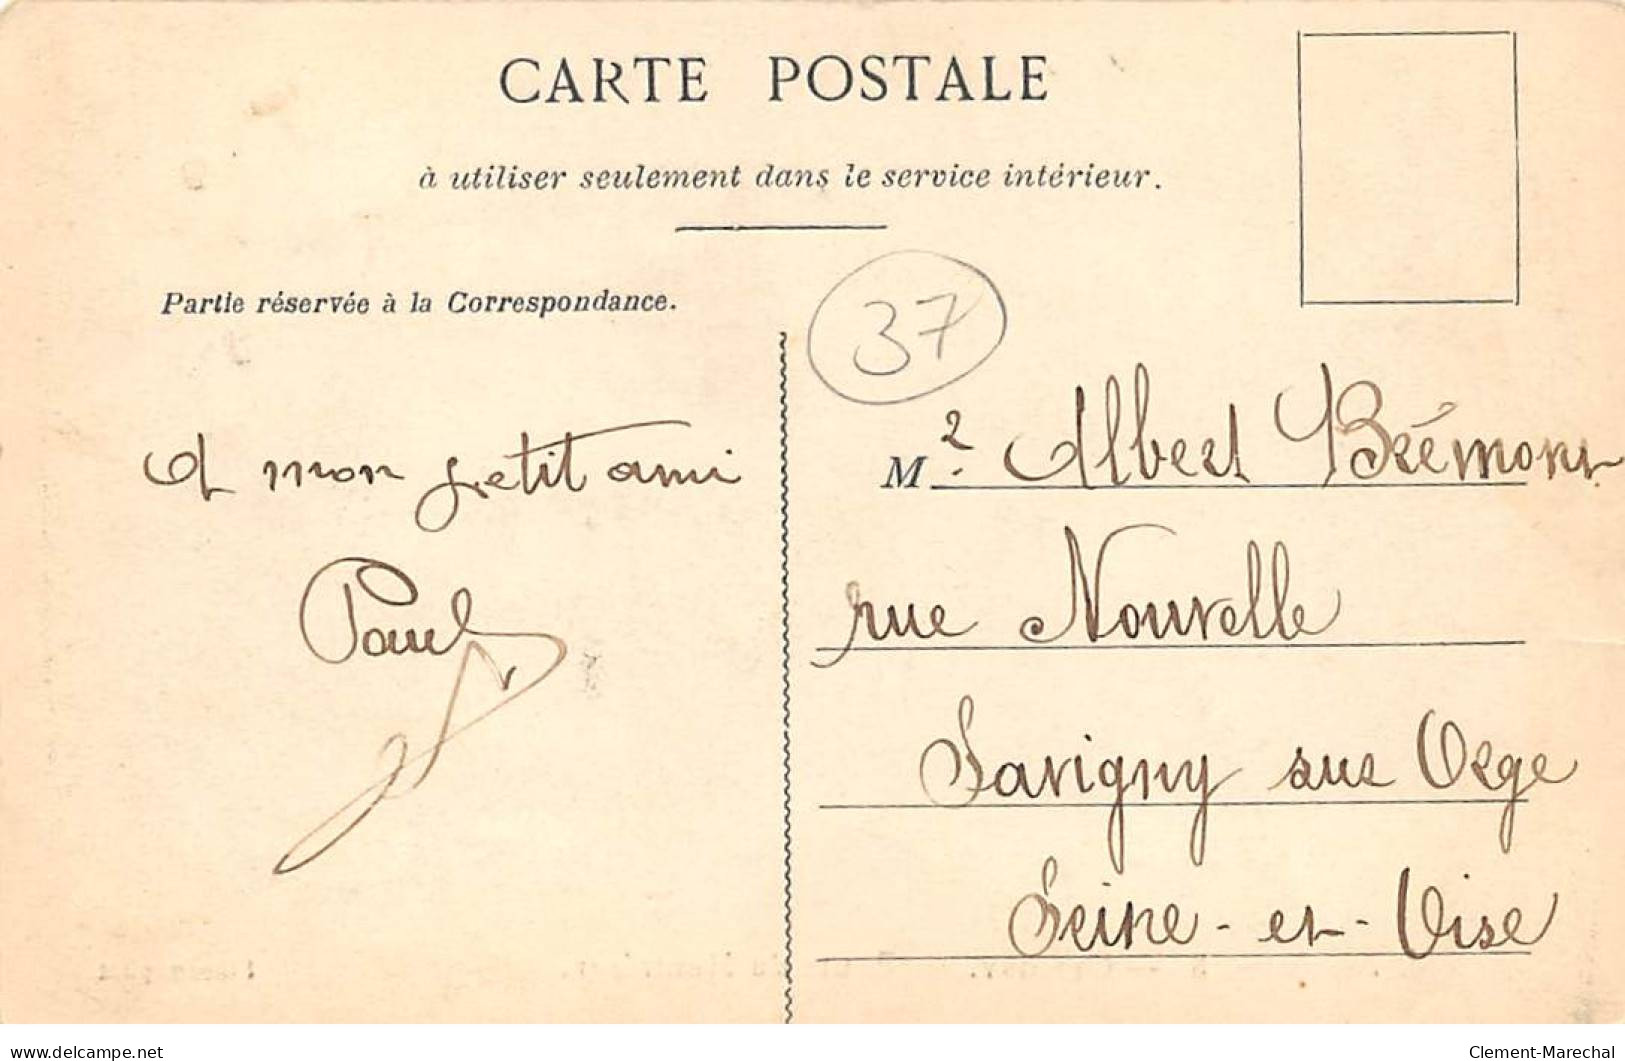 CARTE POSTALE
à utiliser seulement dans le service intérieur.
Partie réservée à la Correspondance.
37
A mon petit ami
Paul
M.r Albert Brémont
rue Nouvelle
Savigny sur Orge
Seine-et-Oise
www.delcampe.net
Clement-Marechal